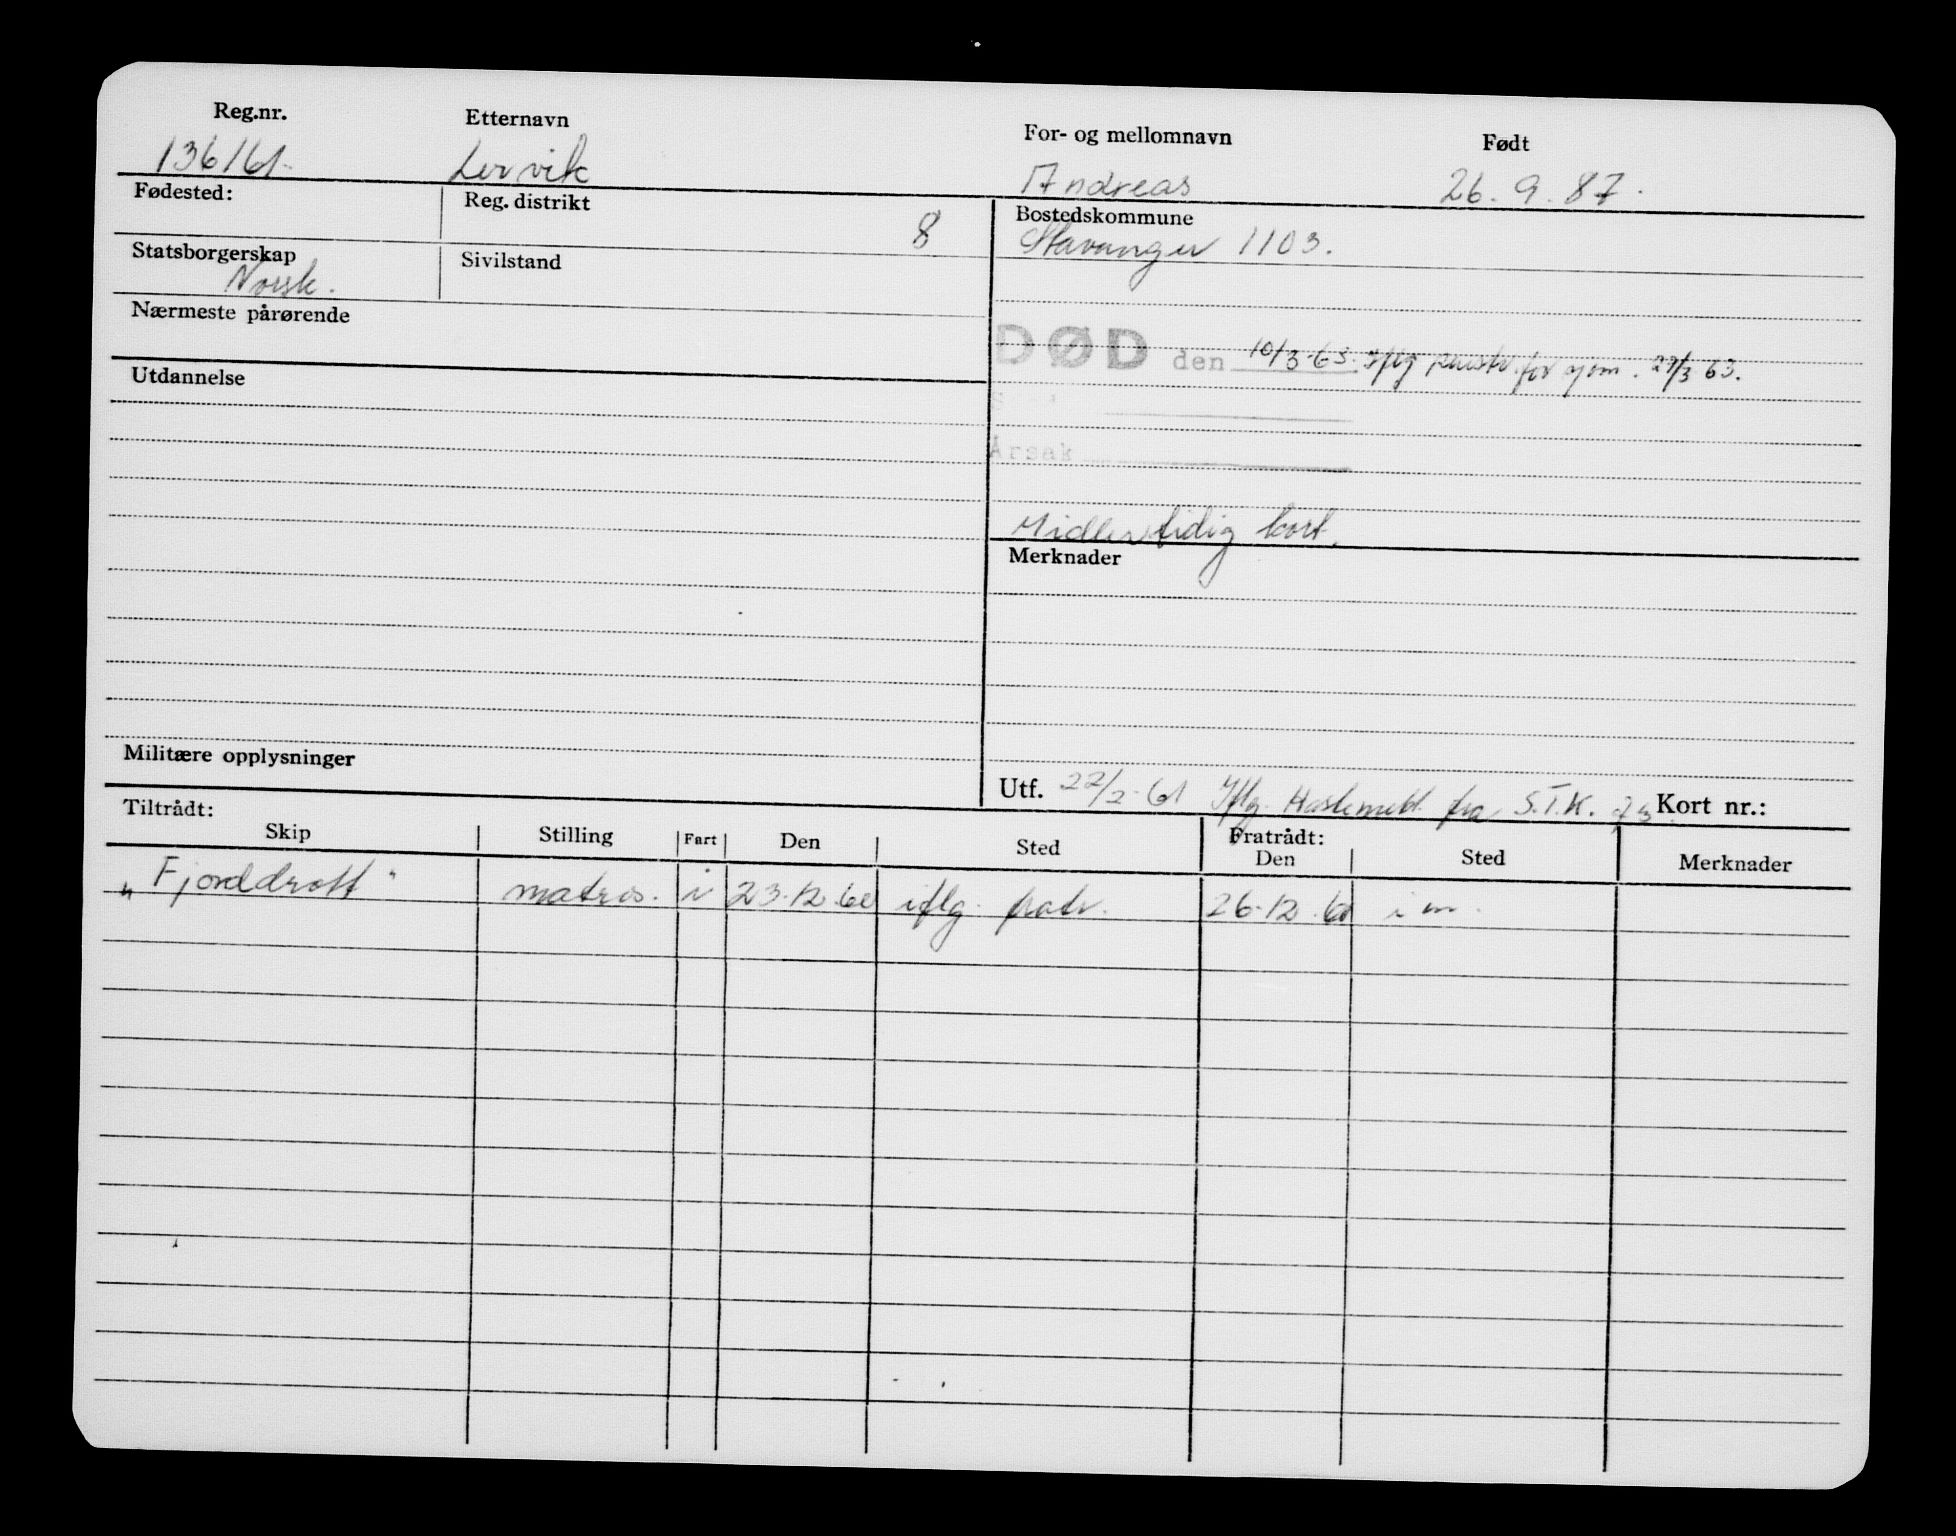 Reg.nr. Etternavn For- og mellomnavn Født
136161 Lervik Andreas 26.9.87.
Fødested: Reg. distrikt 8 Bostedskommune
Stavanger 1103.
Statsborgerskap Sivilstand
Norsk.
Nærmeste pårørende
DØD den 10/3-63. iflg for sjøm. 29/3 63.
Utdannelse
Årsak
Midlertidig kort.
Merknader
Militære opplysninger
Utf. 22/2-61 Iflg. fra S.T.K. Kort nr.:
Tiltrådt: Fratrådt:
Skip Stilling Fart Den Sted Den Sted Merknader
"Fjorddrott" matros. i 23.12.60 iflg. fratr. 26.12.60 i m.